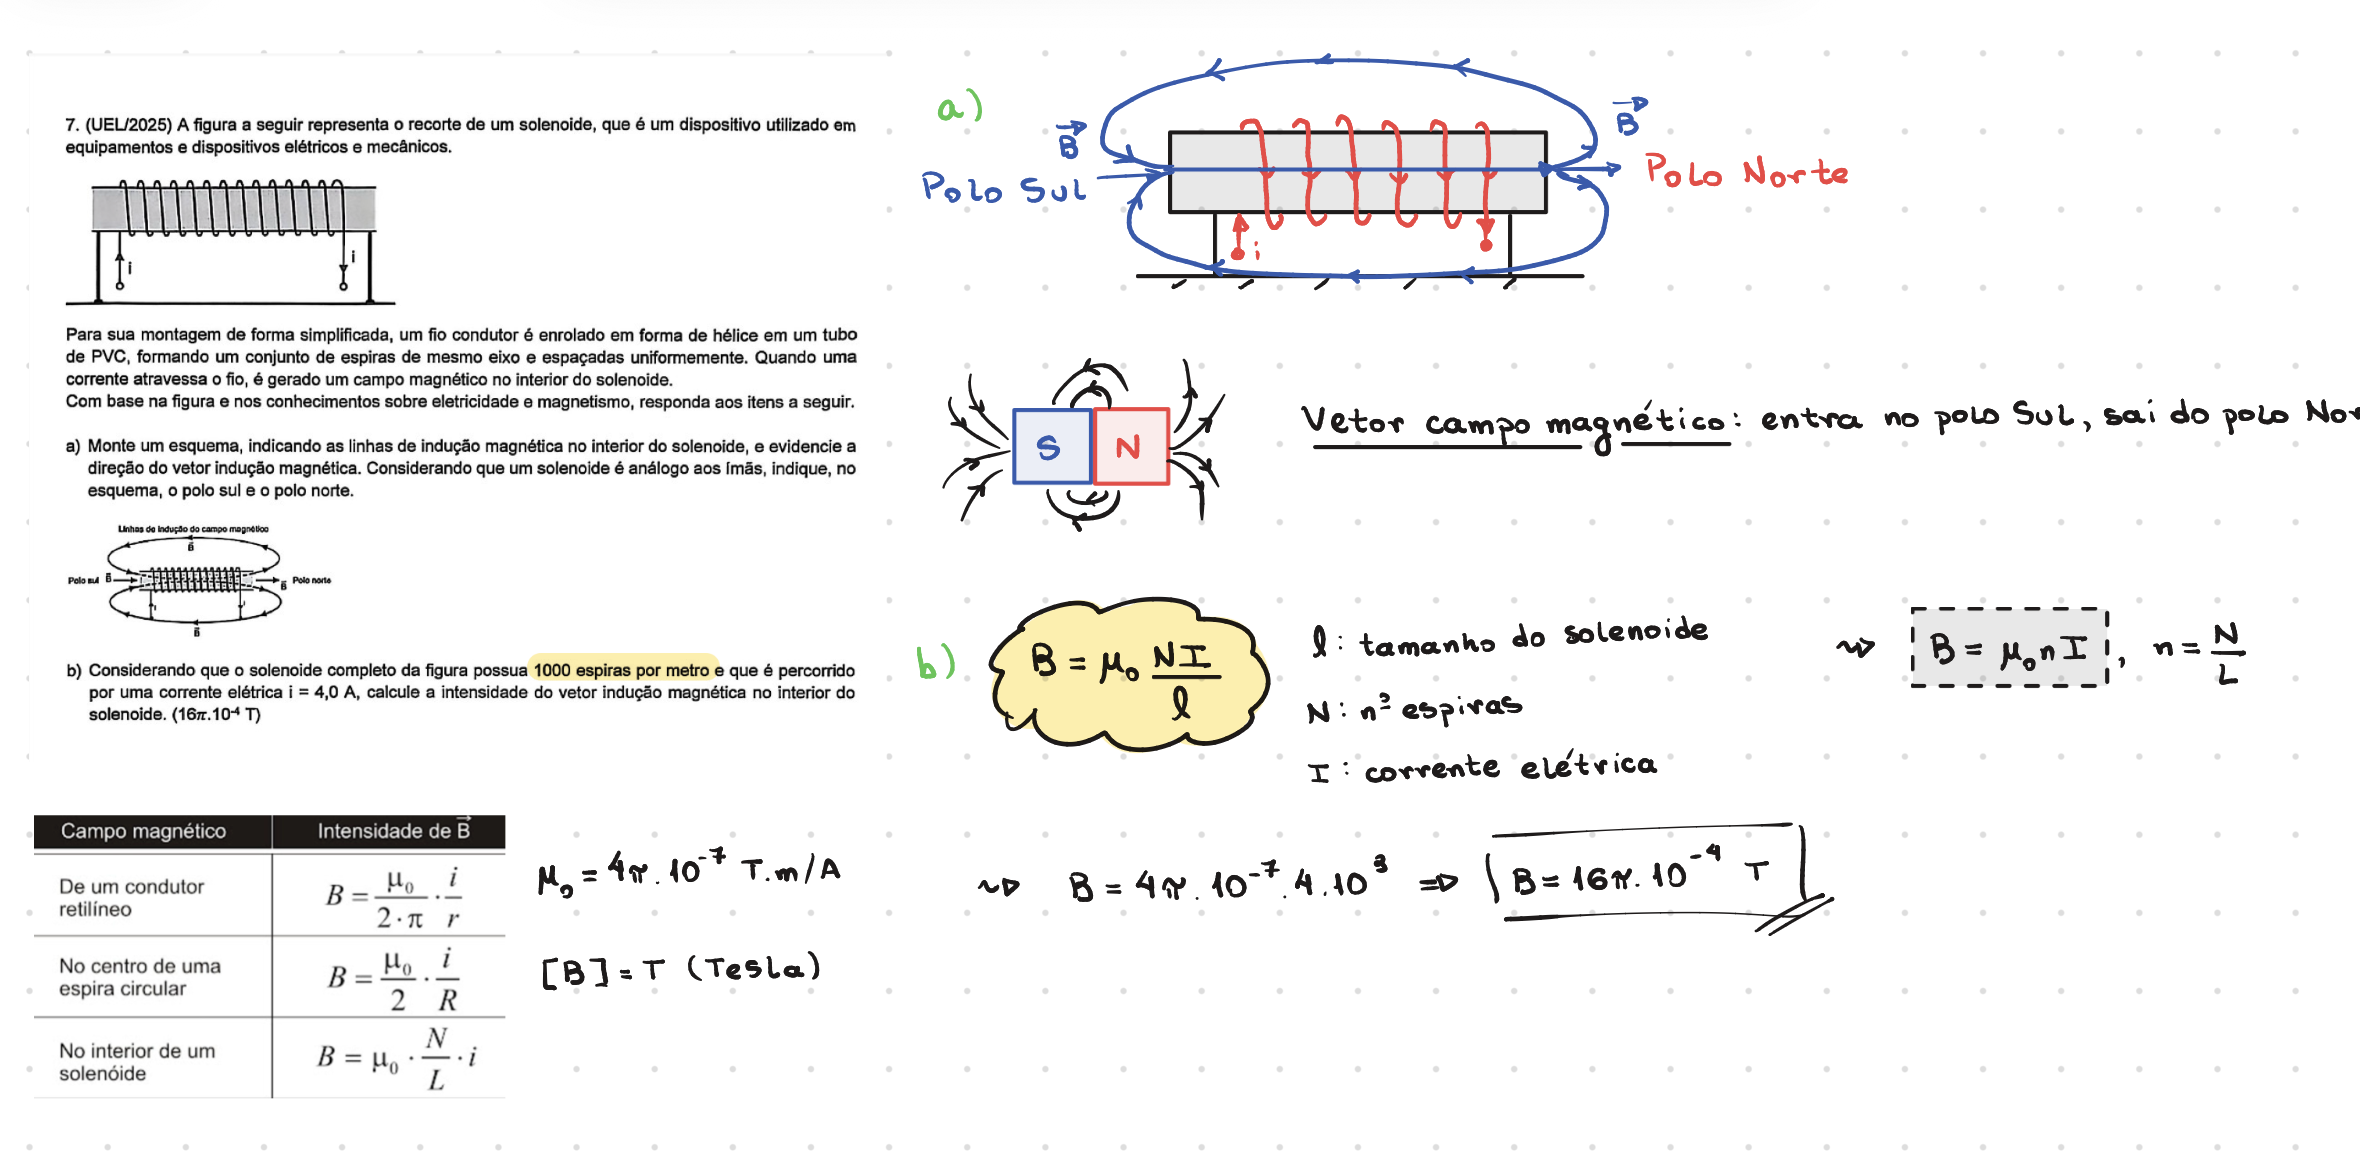 7. (UEL/2025) A figura a seguir representa o recorte de um solenoide, que é um dispositivo utilizado em
equipamentos e dispositivos elétricos e mecânicos.
i
i
Para sua montagem de forma simplificada, um fio condutor é enrolado em forma de hélice em um tubo
de PVC, formando um conjunto de espiras de mesmo eixo e espaçadas uniformemente. Quando uma
corrente atravessa o fio, é gerado um campo magnético no interior do solenoide.
Com base na figura e nos conhecimentos sobre eletricidade e magnetismo, responda aos itens a seguir.
a) Monte um esquema, indicando as linhas de indução magnética no interior do solenoide, e evidencie a
direção do vetor indução magnética. Considerando que um solenoide é análogo aos ímãs, indique, no
esquema, o polo sul e o polo norte.
Linhas de indução do campo magnético
B⃗
Polo sul B⃗
B⃗ Polo norte
i
i
B⃗
b) Considerando que o solenoide completo da figura possua 1000 espiras por metro e que é percorrido
por uma corrente elétrica i = 4,0 A, calcule a intensidade do vetor indução magnética no interior do
solenoide. (16π.10⁻⁴ T)
Campo magnético Intensidade de B⃗
De um condutor
retilíneo
B = μ₀/(2·π) · i/r
No centro de uma
espira circular
B = μ₀/2 · i/R
No interior de um
solenóide
B = μ₀ · N/L · i
μ₀ = 4π . 10⁻⁷ T.m/A
[B] = T (Tesla)
a)
B⃗
Polo Sul
B⃗
Polo Norte
i
S N
Vetor campo magnético: entra no polo Sul, sai do polo Nor
b)
B = μ₀ NI/l
l : tamanho do solenoide
N : nº espiras
I : corrente elétrica
⇝ B = μ₀nI , n = N/L
⇝ B = 4π . 10⁻⁷ . 4 . 10³ ⇒ B = 16π . 10⁻⁴ T